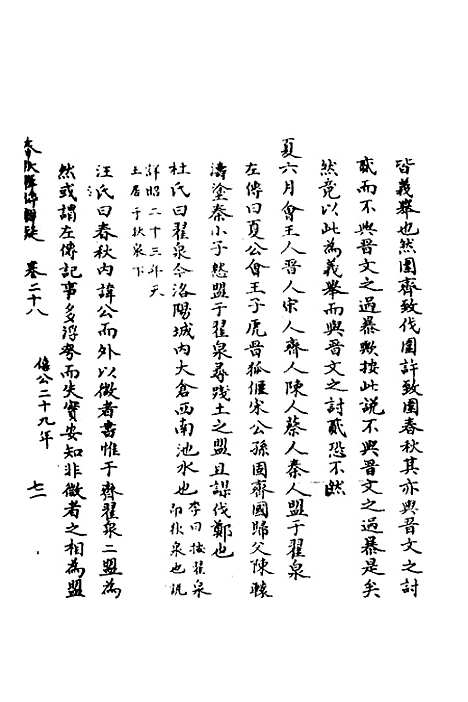 皆義舉也然圍齊致伐圍許致圍春秋其亦與晋文之討
貳而不與晋文之過暴歟按此説不與晋文之過暴是矣
然竟以此為義舉而與晋文之討貳恐不然
夏六月會王人晋人宋人齊人陳人蔡人秦人盟于翟泉
左傳曰夏公會王子虎晋狐偃宋公孫固齊國歸父陳轅
濤塗秦小子憖盟于翟泉尋踐土之盟且謀伐鄭也
杜氏曰翟泉今洛陽城内大倉西南池水也
李曰按翟泉
即狄泉也説
詳昭二十三年天
王居于狄泉下
汪氏曰春秋内諱公而外以微者書惟于齊翟泉二盟為
然或謂左傳記事多浮夸而失實安知非微者之相為盟
卷二十八
僖公二十九年
七一